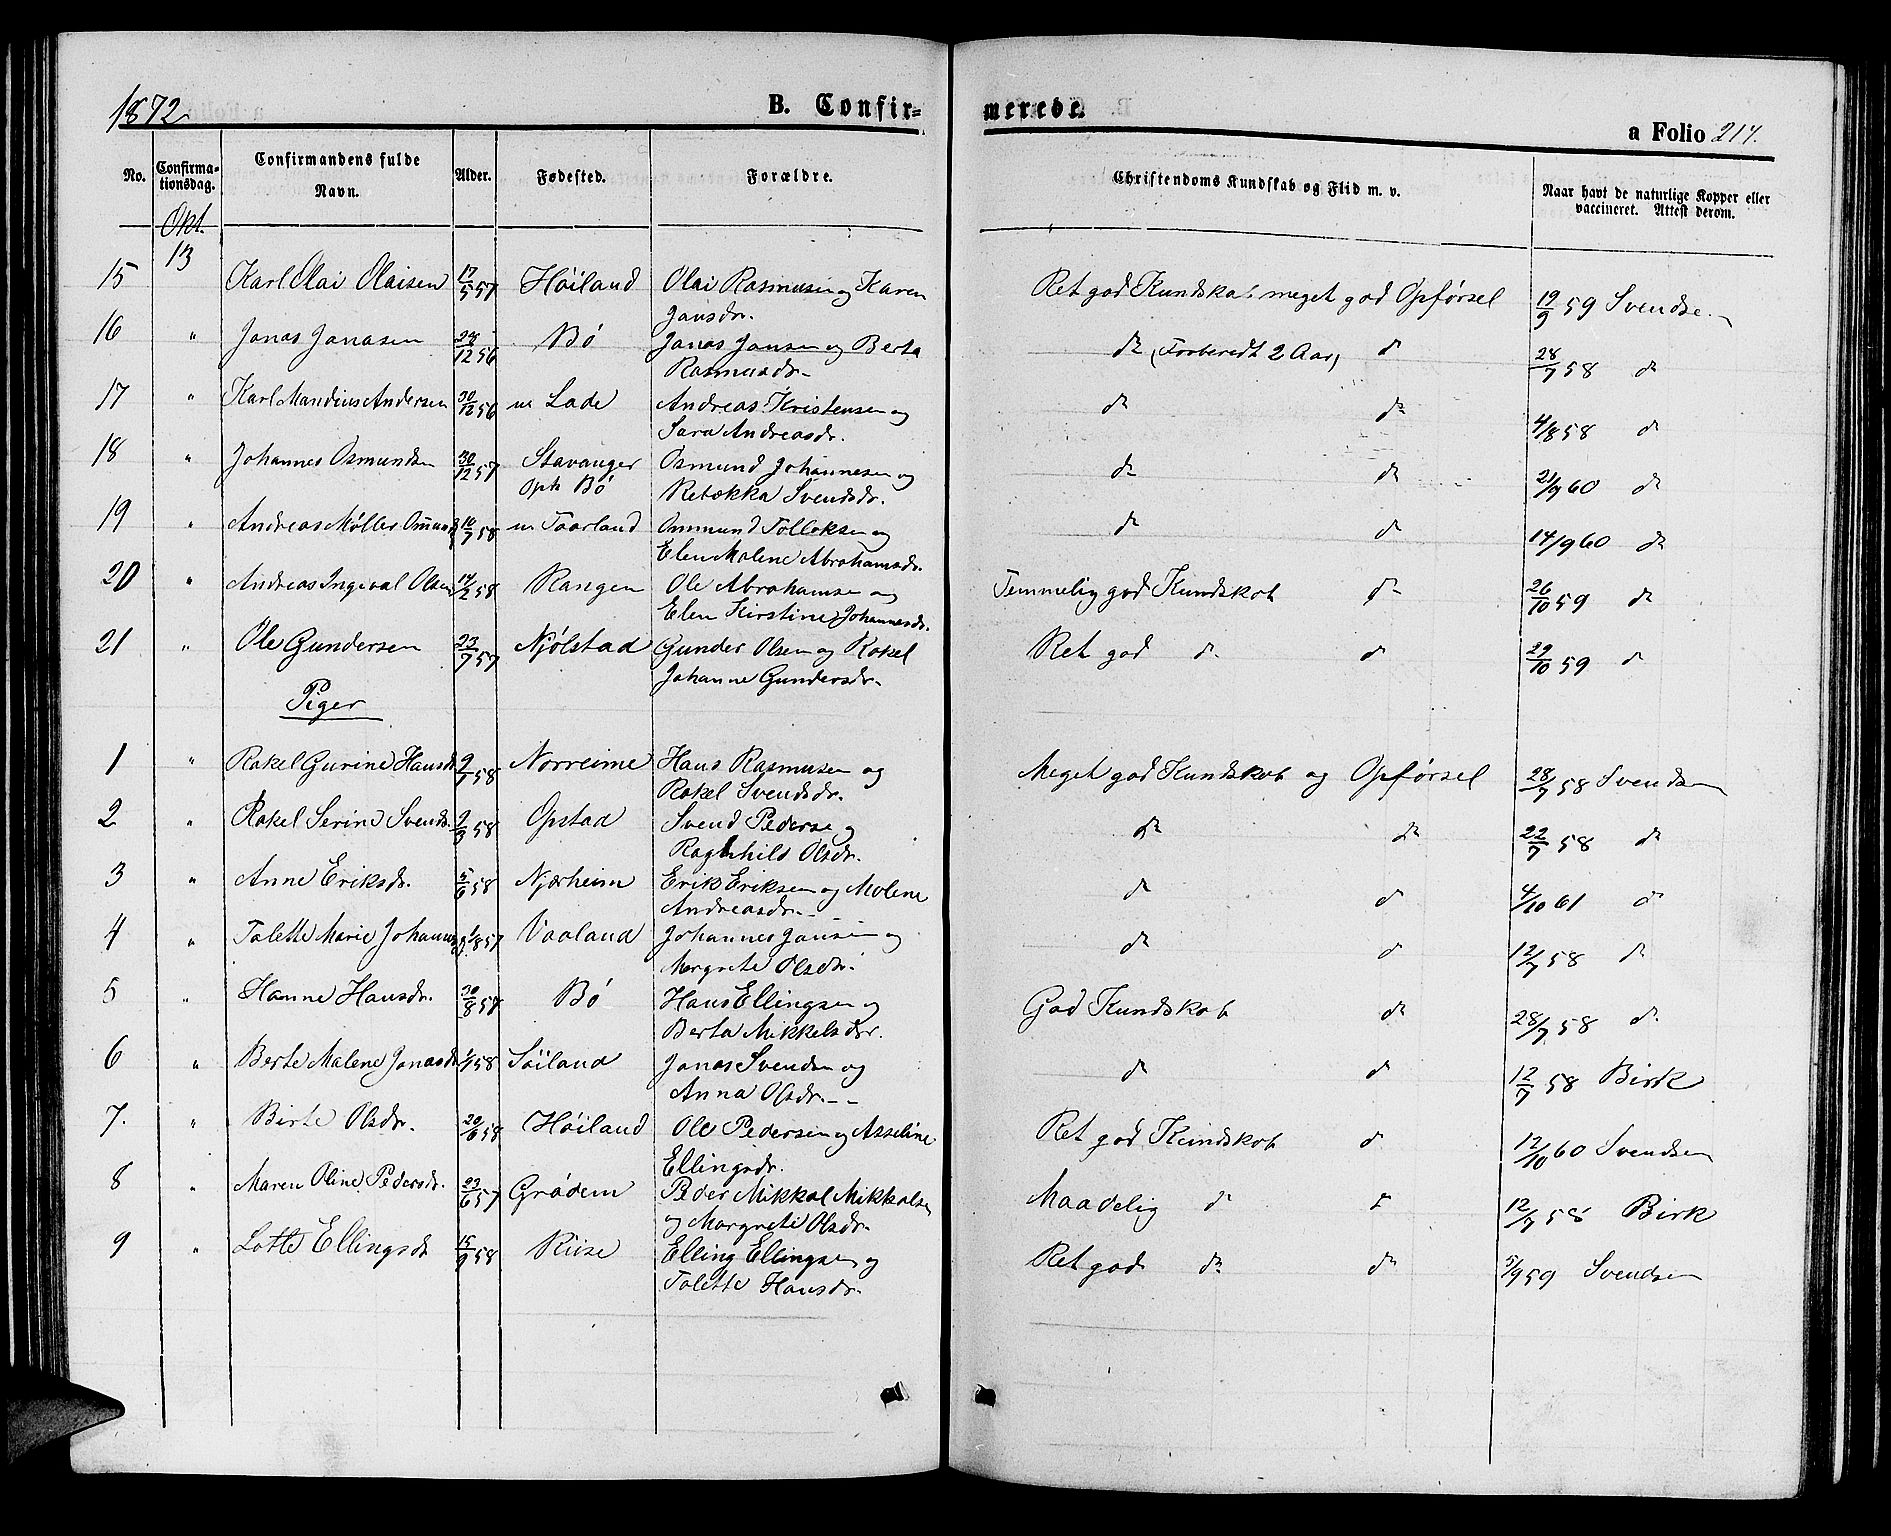 1872
B. Confir-
merede.
a Folio 214.
No. Confirma-tionsdag. Confirmandens fulde Navn. Alder. Fødested. Forældre. Christendoms Kundskab og Flid m. v. Naar havt de naturlige Kopper eller vaccineret. Attest derom.
Okt.
13
15 Karl Olai Olaisen 17/5 57 Høiland Olai Rasmusen og Karen Ret god Kundskab meget god Opførsel 19/9 59 Svendsen
Jansdr.
16 " Jonas Jonasen 28/12 56 Bø Jonas Jansen og Berta do (Forberedt 2 Aar) do 28/7 58 do
Rasmusdr.
17 " Karl Mandius Andersen 30/12 56 n. Lade Andreas Kristensen og do do 4/8 58 do
Sara Andreasdr.
18 " Johannes Osmundsen 30/12 57 Stavanger Osmund Johannesen og do do 21/9 60 do
Opf. Bø Rebekka Svendsdr.
19 " Andreas Møller Omunds 10/7 58 n. Taarland Ommund Tolleksen og do do 14/9 60 do
Elen Malene Abrahamsdr.
20 " Andreas Ingeval Olsen 14/2 58 Rangen Ole Abrahamsen og Temmelig god Kundskab do 26/10 59 do
Elen Kirstine Johannesdr.
21 " Ole Gundersen 23/7 57 Njølstad Gunder Olsen og Rakel Ret god do do 29/10 59 do
Johanne Gundersdr.
Piger
1 " Rakel Gurine Hansdr 9/7 58 Norreime Hans Rasmusen og Meget god Kundskab og Opførsel 28/7 58 Svendsen
Rakel Svendsdr.
2 " Rakel Serine Svends. 9/3 58 Opstad Svend Pedersen og do do 22/7 58 do
Ragnhild Olsdr.
3 " Anne Eriksdr. 5/6 58 Njærheim Erik Eriksen og Malene do do 4/10 61 do
Andreasdr.
4 " Talette Marie Johannesdr. 1/8 57 Vaaland Johannes Jansen og do do 12/7 58 do
Margrete Olsdr.
5 " Hanne Hansdr. 30/8 57 Bø Hans Ellingsen og God Kundskab do 28/7 58 do
Berta Mikkelsdr.
6 " Berte Malene Jonasdr 1/1 58 Søiland Jonas Svendsen og do do 12/7 58 Birk
Anna Olsdr.
7. " Birte Olsdr. 20/6 58 Høiland Ole Pedersen og Asseline Ret god Kundskab do 12/10 60 Svendsen
Ellingsdr.
8 " Maren Oline Pedersdr. 23/6 57 Grødem Peder Mikkal Mikkalsen Maadelig do do 12/7 58 Birk
og Margrete Olsdr.
9 " Lotte Ellingsdr 15/9 58 Riise Elling Ellingsen og Ret god do do 5/9 59 Svendsen
Talette Hansdr.